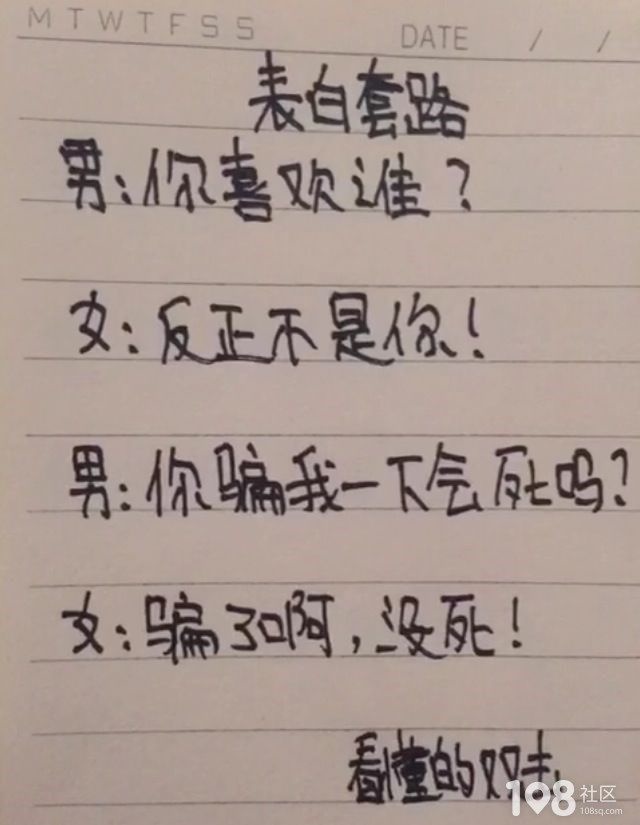 M T W T F S S
DATE / /
表白套路
男:你喜欢谁?
女:反正不是你!
男:你骗我一下会死吗?
女:骗了啊,没死!
看懂的双击
108社区
108sq.com